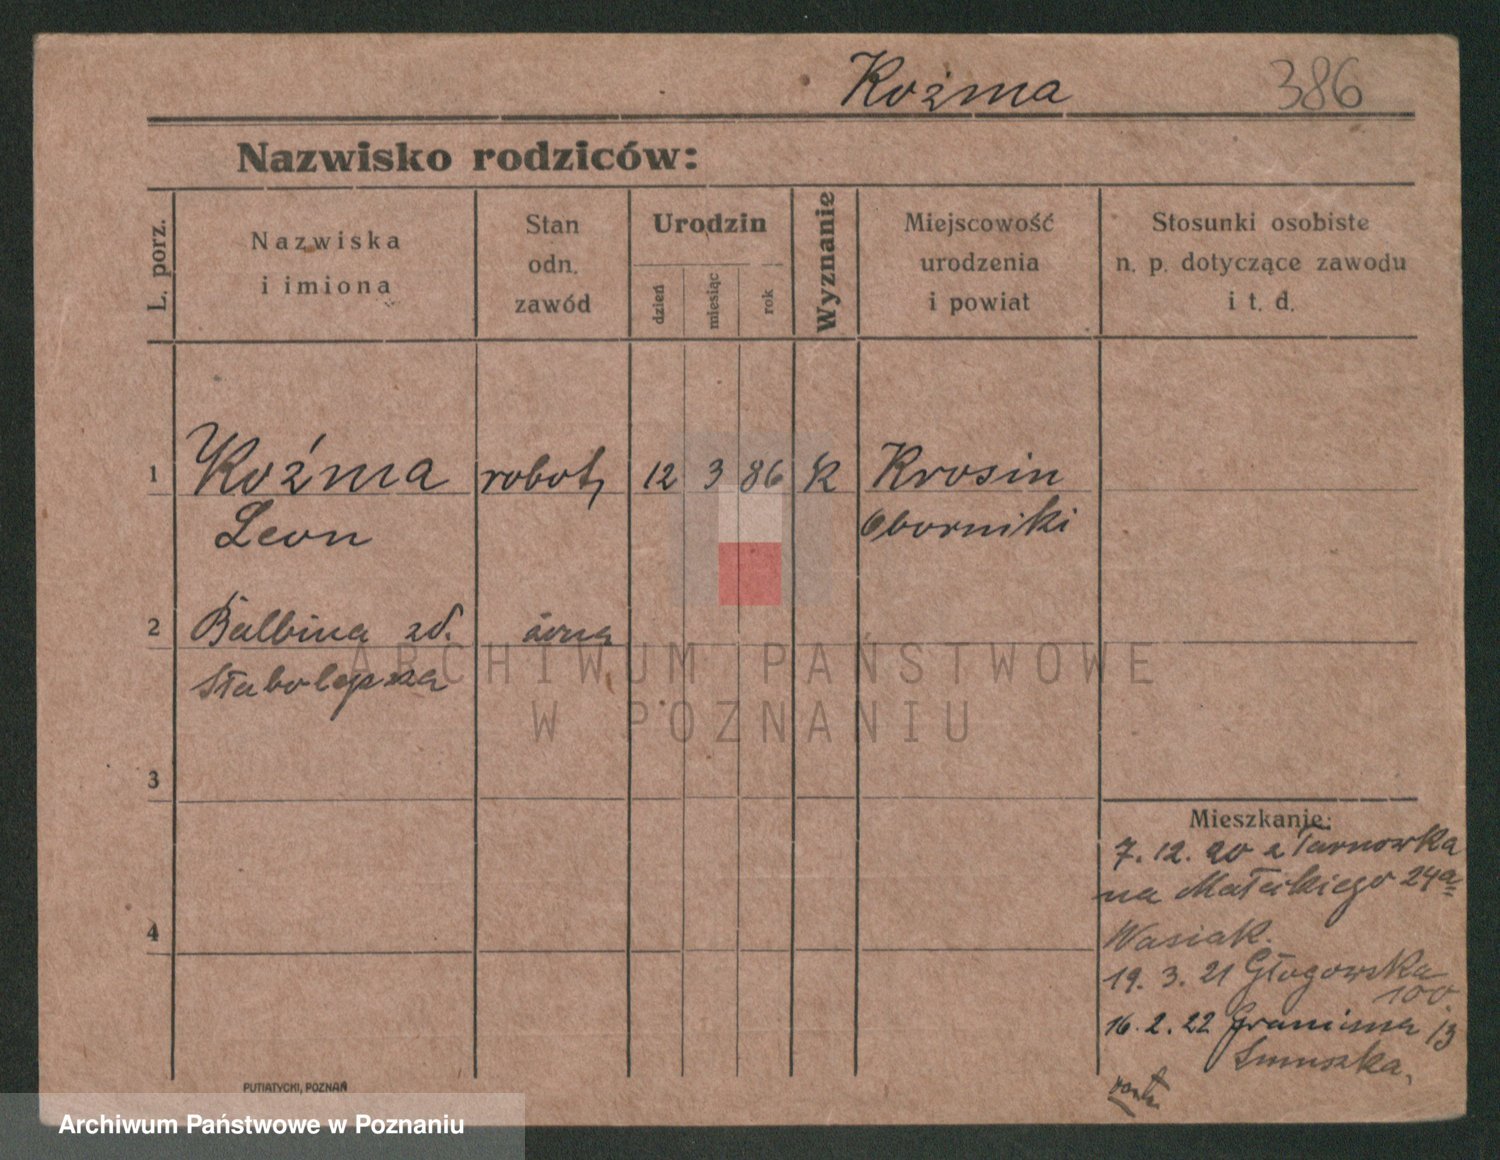 Koźma 386
Nazwisko rodziców:
L. porz.
Nazwiska
i imiona
Stan
odn.
zawód
Urodzin
dzień
miesiąc
rok
Wyznanie
Miejscowość
urodzenia
i powiat
Stosunki osobiste
n. p. dotyczące zawodu
i t. d.
1 Koźma robot, 12 3 86 K Krosin
Leon Oborniki
2 Balbina zd.
ARCHIWUM PAŃSTWOWE
W POZNANIU
3
4
Mieszkanie:
7. 12. 20 z Tarnowka
na Małeckiego 24a
Wasiak.
19. 3. 21 Głogowska
100.
16. 2. 22 Graniczna 13
Smuszka,
PUTIATYCKI, POZNAŃ
Archiwum Państwowe w Poznaniu